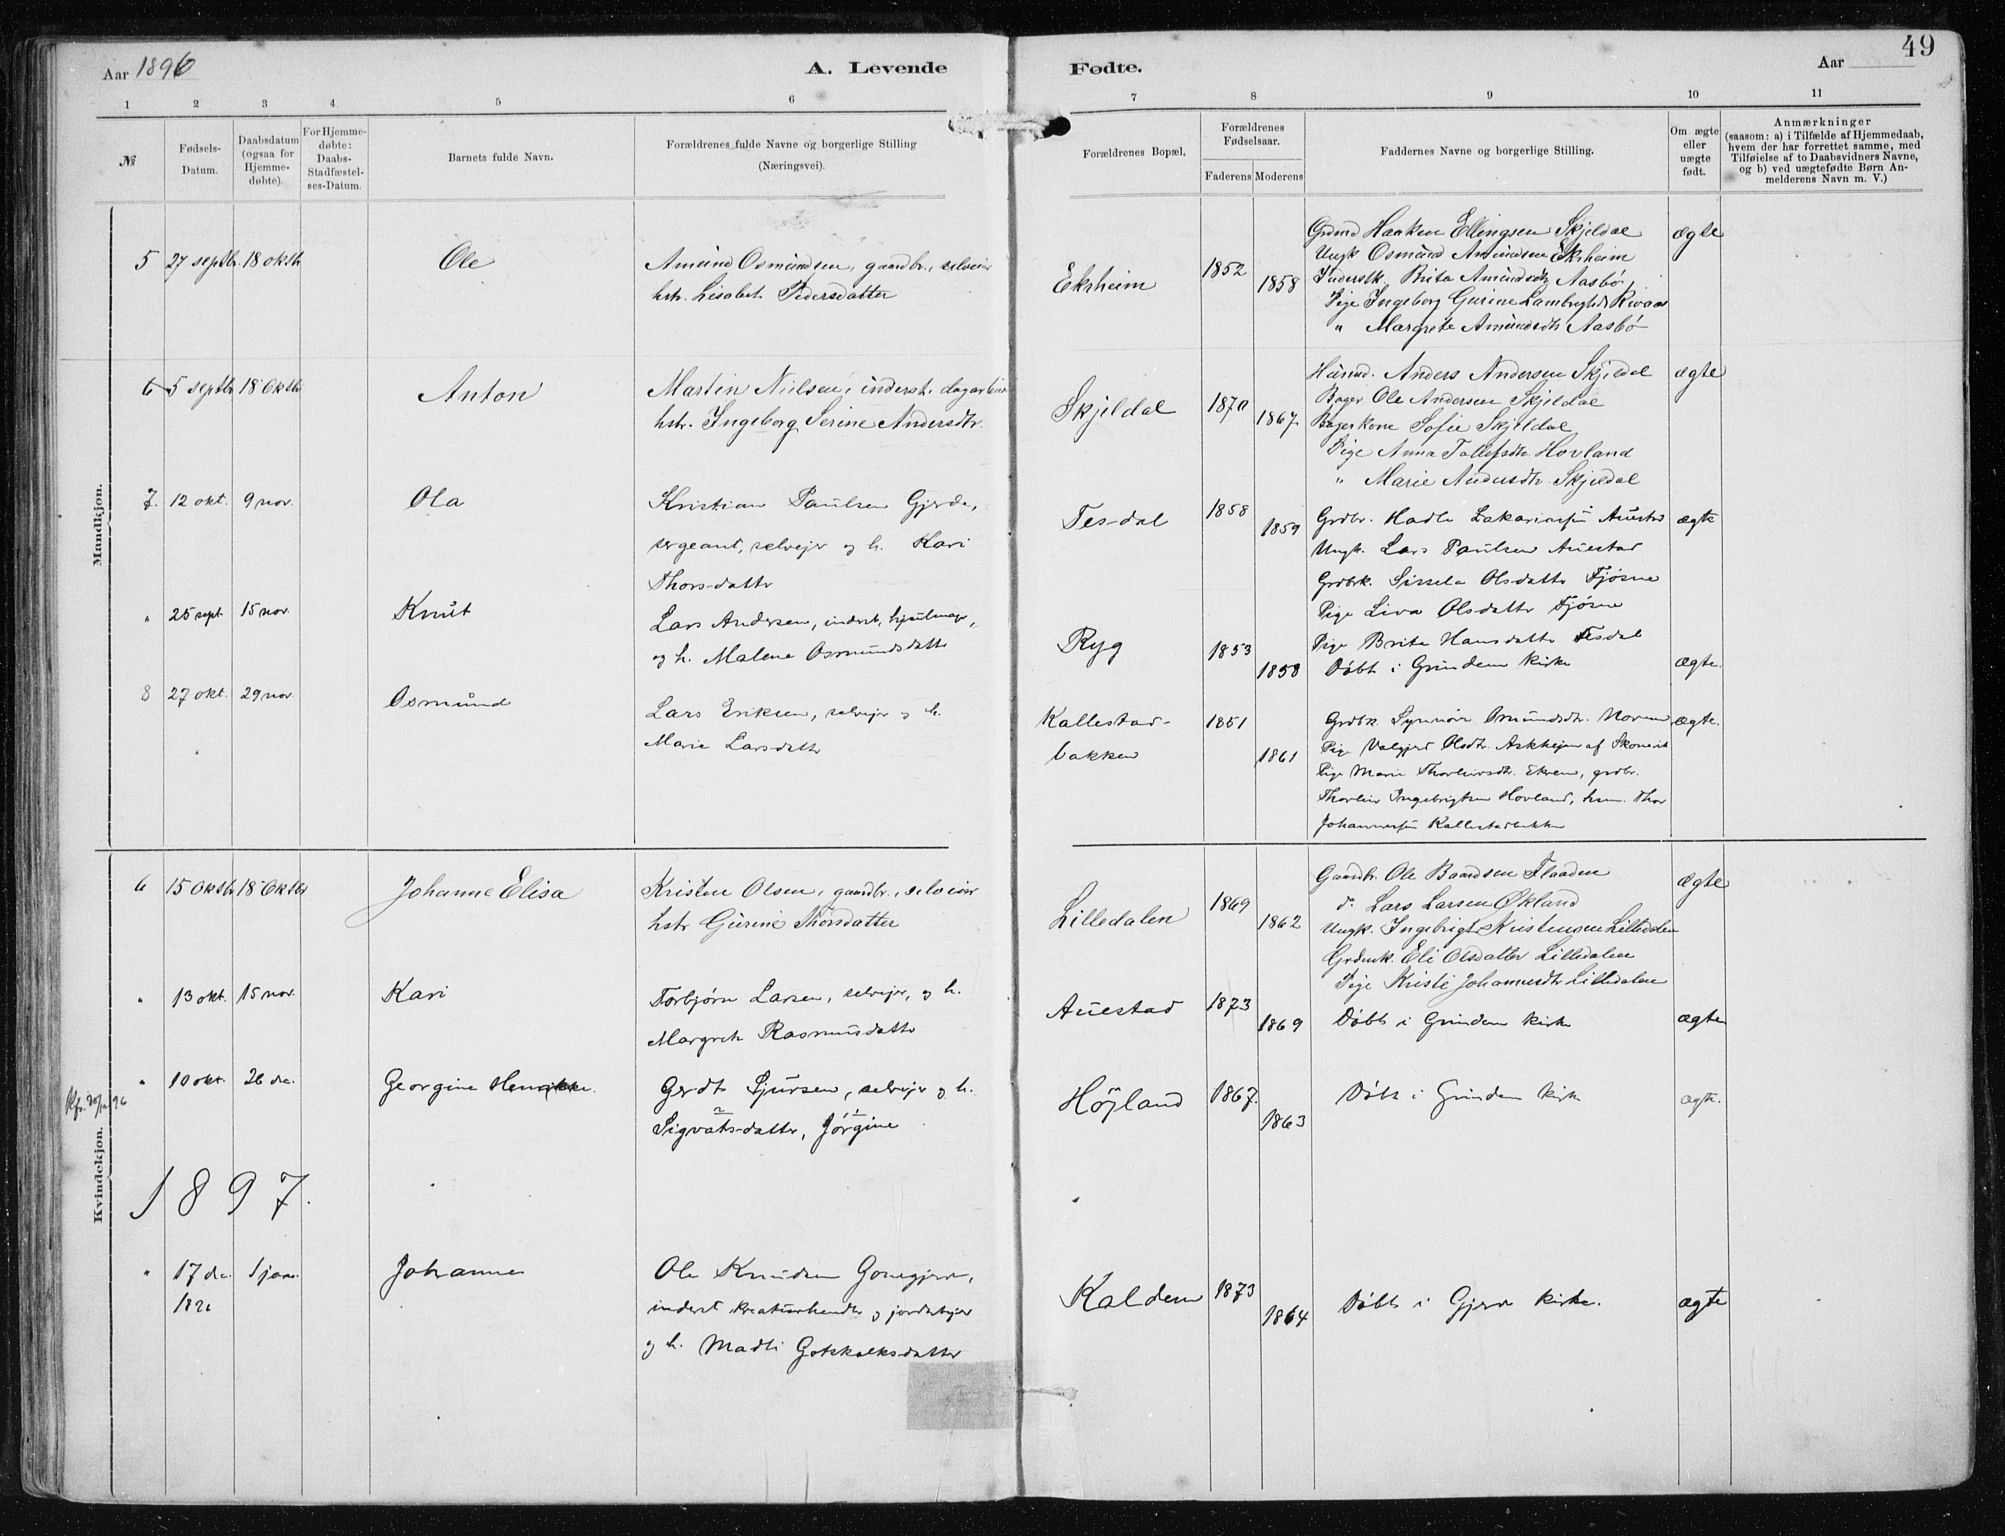 49
Aar 1896
A. Levende
Fødte.
Aar
1 2 3 4 5 6 7 8 9 10 11
№
Fødsels-
Datum.
Daabsdatum
(ogsaa for
Hjemme-
døbte).
For Hjemme-
døbte:
Daabs-
Stadfæstel-
ses-Datum.
Barnets fulde Navn.
Forældrenes fulde Navne og borgerlige Stilling
(Næringsvei).
Forældrenes Bopæl.
Forældrenes
Fødselsaar.
Faderens Moderens
Faddernes Navne og borgerlige Stilling.
Om ægte
eller
uægte
født.
Anmærkninger
(saasom: a) i Tilfælde af Hjemmedaab,
hvem der har forrettet samme, med
Tilføielse af to Daabsvidners Navne,
og b) ved uægtefødte Børn An-
melderens Navn m. V.)
Mandkjøn.
5 27 septb. 18 oktb Ole
Amund Osmundsen, gaardbr., selveier
hstr. Lisabet Pedersdatter
Eksheim 1852 1858
Haaken Ellingsen Skjeldal
Ungk Osmund Amundsen Eksheim
Inderstk. Brita Amundsdtr Aasbø,
Pige Ingeborg Gurine
" Margrete Amundsdtr Aasbø
ægte
6 5 septbr 18 Oktbr Anton
Martin Nielsen, inderst. dagarbeid
hstr. Ingeborg Serine Andersdtr.
Skjeldal 1870 1867.
Husmd. Anders Andersen Skjeldal
Bager Ole Andersen Skjeldal
Bagerkone Sofie Skjeldal
Pige Anna Tollefsdtr Hovland
" Marie Andersdtr. Skjeldal
ægte
7. 12 okt. 9 nov. Ola
Kristian Paulsen Gjerde,
sergeant, selvejer og h. Kari
Thorsdattr
Tesdal 1858 1859
Grdbr. Hadle Zakariassen Auestad
Ungk. Lars Paulsen Auestad
Grdbrk. Sissela Olsdattr Fjøsne
Pige Liva Olsdattr Fjøsne
Pige Brita Hansdattr Tesdal
ægte
" 25 sept 15 nov. Knut
Lars Andersen, inderst, hjulmager,
og h. Malene Osmundsdattr
Ryg 1853 1858
Døbt i Grinden kirke
ægte.
8 27 okt. 29 nov Osmund
Lars Eriksen, selvejer og h.
Marie Larsdattr
Kallestad-
bakken
1851 1861
Grdbk. Synnøve Osmundsdtr.
Pige Valgjerd Olsdtr. af Skonevik
Pige Marie Thorleivsdtr. Ekren, grdbr.
Thorleiv Ingebrigtsen Hovland, hsm. Thor
Johannessen Kallestadbakke
ægte.
Kvindekjøn.
6 15 Oktbr 18 Oktbr Johanne Elisa
Kristen Olsen, gaardbr., selveier
hstr Gurine Thorsdatter
Lilledalen 1869 1862
Gaardbr. Ole Baardsen Flaaden
d. Lars Larsen Økland
Ungk. Ingebrigt Kristensen Lilledalen
Eli Olsdatter Lilledalen
Pige Kristi Johannesdtr Lilledalen
ægte
" 13 okt. 15 nov. Kari
Torbjørn Larsen, selvejer, og h.
Margrete Rasmusdattr
Auestad 1873 1869
Døbt i Grinden kirke
ægte
" 10 okt. 26 de. Georgine Henrikke.
Gerdt Sjursen, selvejer og h.
Sigvatsdattr, Jørgine
Højland 1867. 1863
Døbt i Grinden kirke
ægte.
1897.
" 17 de. 1 jan. Johanne
1896
Ole Knudsen Gonegjerd,
inderst kreaturhandler og jordarbejer
og h. Madli Gotskalksdatter
Kaldem 1873 1864
Døbt i Gjerd kirke.
ægte